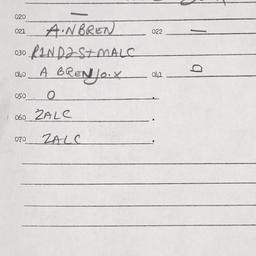 020 —
021 A.NBREN 022 —
030 RINDZSTMALC
040 A BREN/O.X 041 O
050 O
060 ZALC
070 ZALC